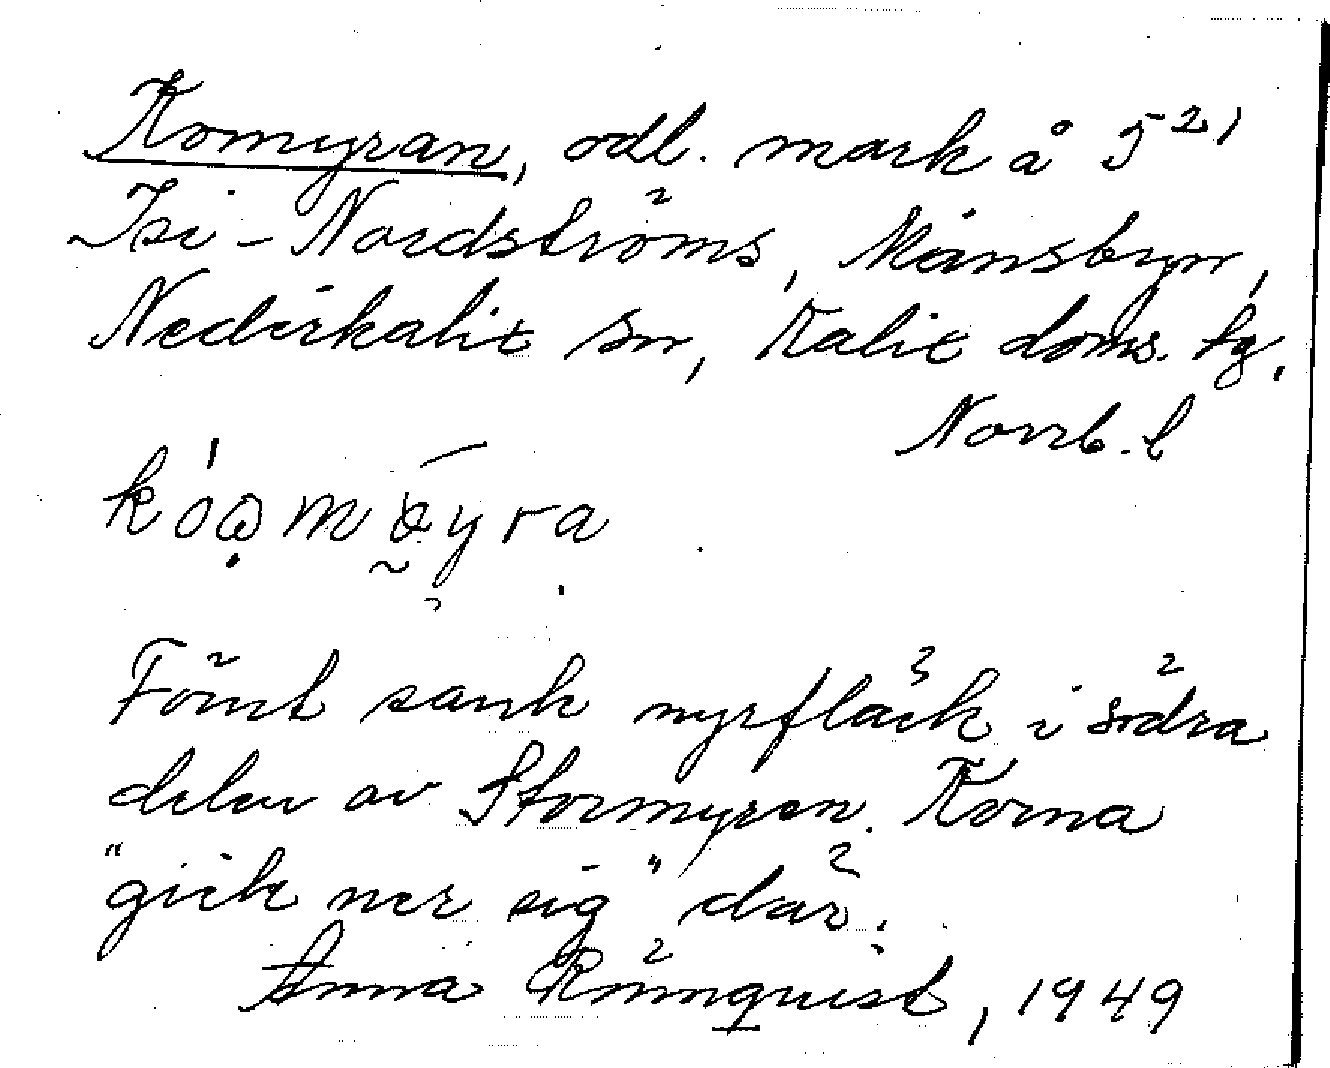 Komyran, odl. mark å 5²¹
Isi-Nordströms, Månsbyn,
Nederkalix sn, Kalix doms. tg.
Norrb. l
Förut sank myrfläck i södra
delen av Stormyren. Korna
"gick ner sig" där.
Anna Rönnquist, 1949